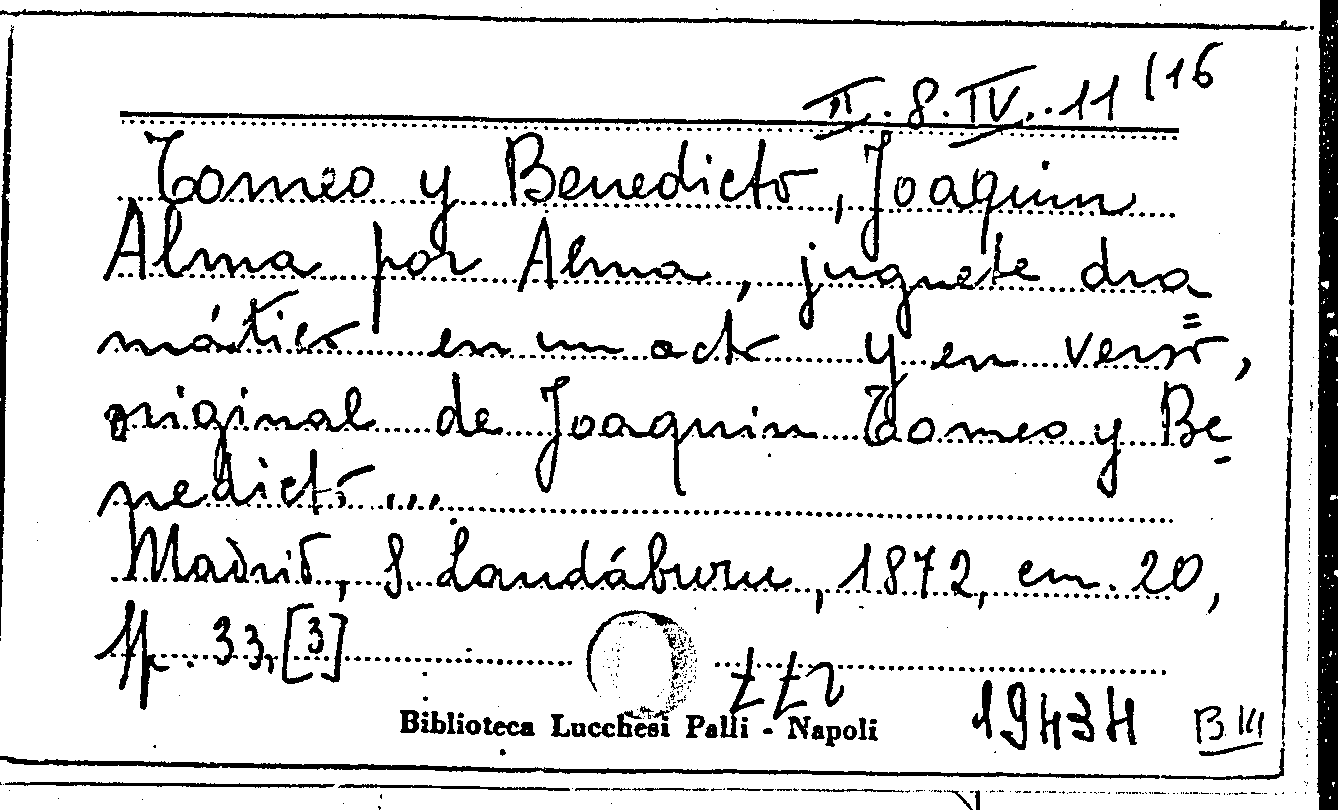 II.8.IV.11/16
Tomeo y Benedicto, Joaquin
Alma por Alma, juguete dra=
mático en un acto y en verso,
original de Joaquin Tomeo y Be-
nedicto ...
Madrid, S. Landáburu, 1872, cm. 20,
pp. 33,[3]
Biblioteca Lucchesi Palli - Napoli
19434 B III